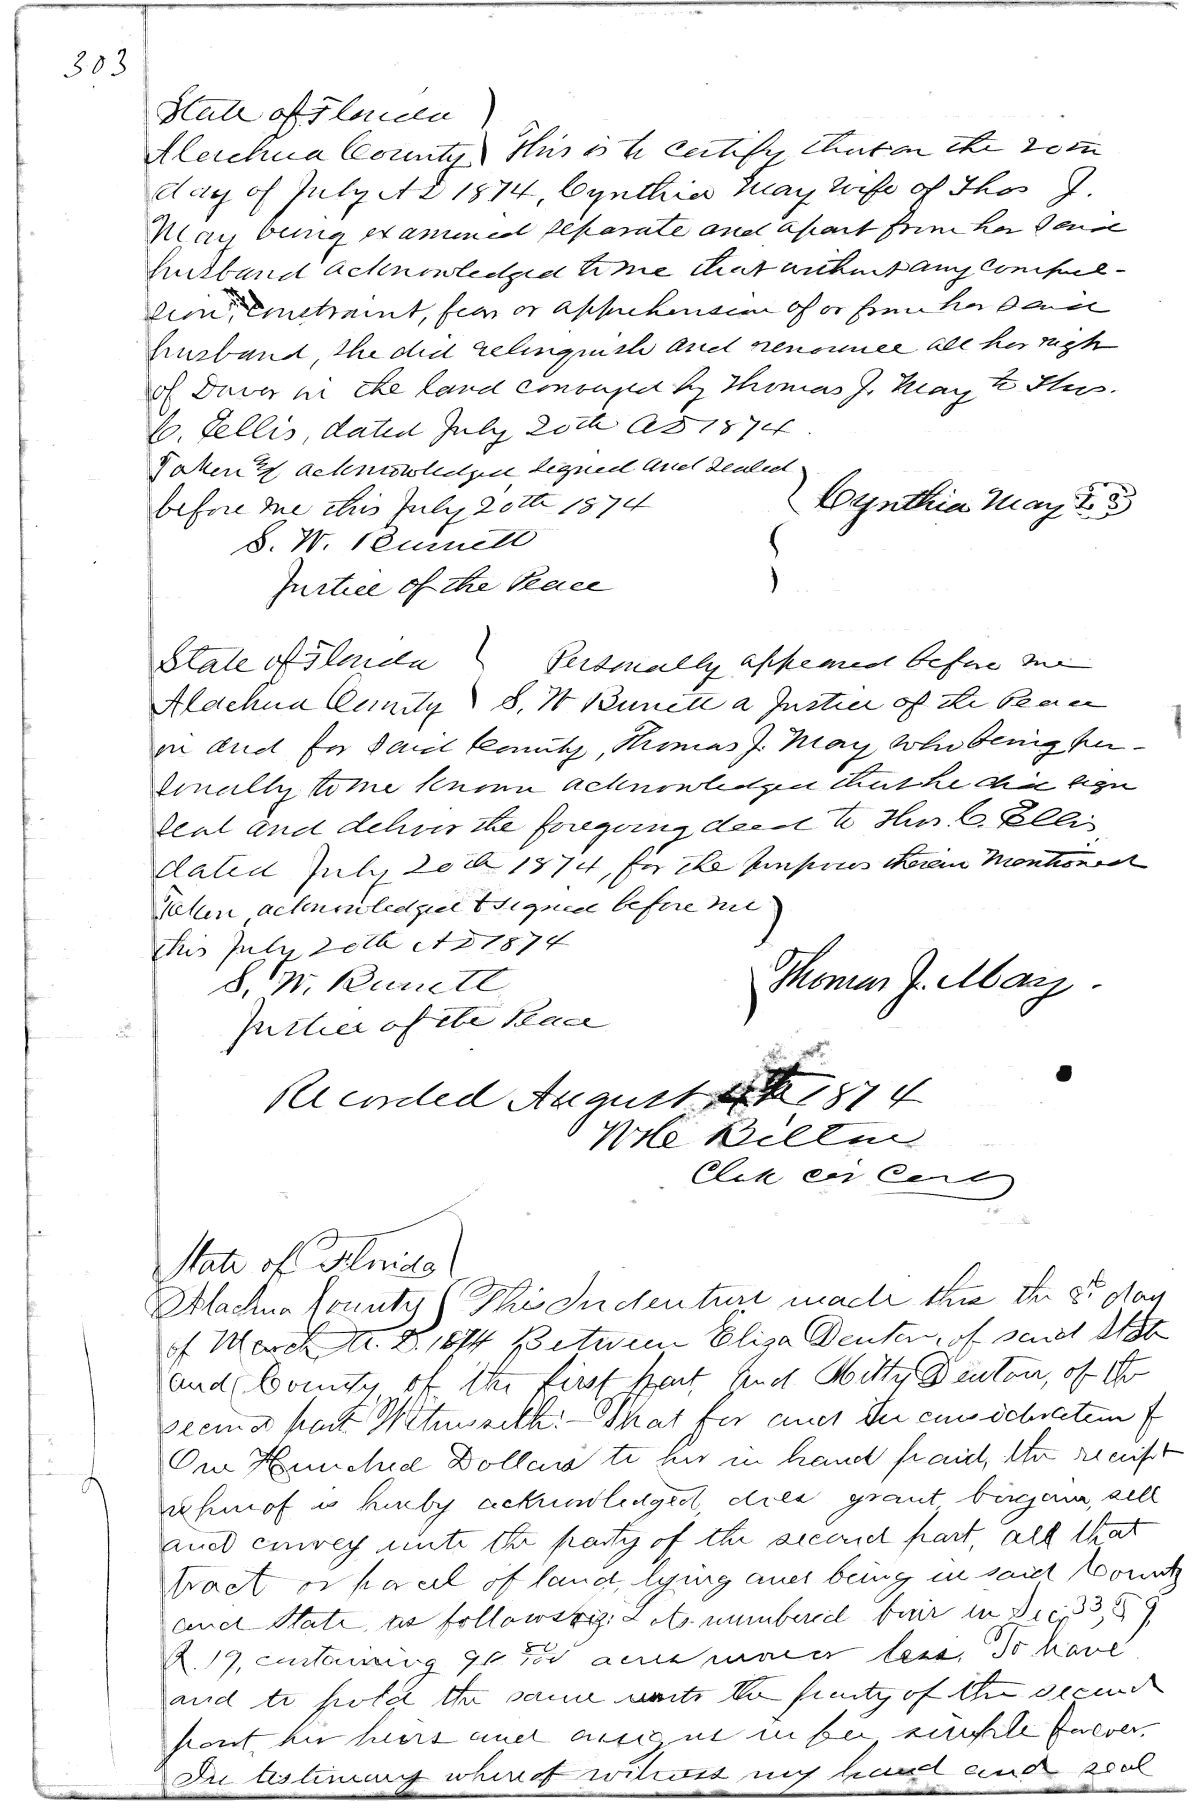 303
State of Florida
Alachua County This is to certify that on the 20th
day of July AD 1874, Cynthia May wife of Thos J.
May being examined separate and apart from her said
husband acknowledged to me that without any compul-
sion, constraint, fear or apprehension of or from her said
husband, she did relinquish and renounce all her right
of Dower in the land conveyed by Thomas J. May to Thos.
C. Ellis, dated July 20th AD 1874.
Taken & acknowledged, signed and sealed
before me this July 20th 1874 Cynthia May L S
S. W. Burnett
Justice of the Peace
State of Florida Personally appeared before me
Alachua County S. W Burnett a Justice of the Peace
in and for said County, Thomas J. May who being per-
sonally to me known acknowledged that he did sign
seal and deliver the foregoing deed to Thos. C. Ellis
dated July 20th 1874, for the purposes therein mentioned
Taken, acknowledged & signed before me
this July 20th AD 1874
S. W. Burnett Thomas J. May.
Justice of the Peace
Recorded August 4th 1874
Clk Cir Court
State of Florida
Alachua County This Indenture made this the 8th day
of March A. D. 1874 Between Eliza Denton, of said State
and County of the first part, and Kitty Denton, of the
second part Witnesseth:- That for and in consideration of
One Hundred Dollars to her in hand paid, the receipt
whereof is hereby acknowledged, does grant, bargain, sell
and convey unto the party of the second part, all that
tract or parcel of land, lying and being in said County
and State as follows viz: Lots numbered four in Sec. 33, T 9,
R. 19, containing 90 80/100 acres more or less. To have
and to hold the same unto the party of the second
part, her heirs and assigns in fee simple forever.
In testimony whereof witness my hand and seal